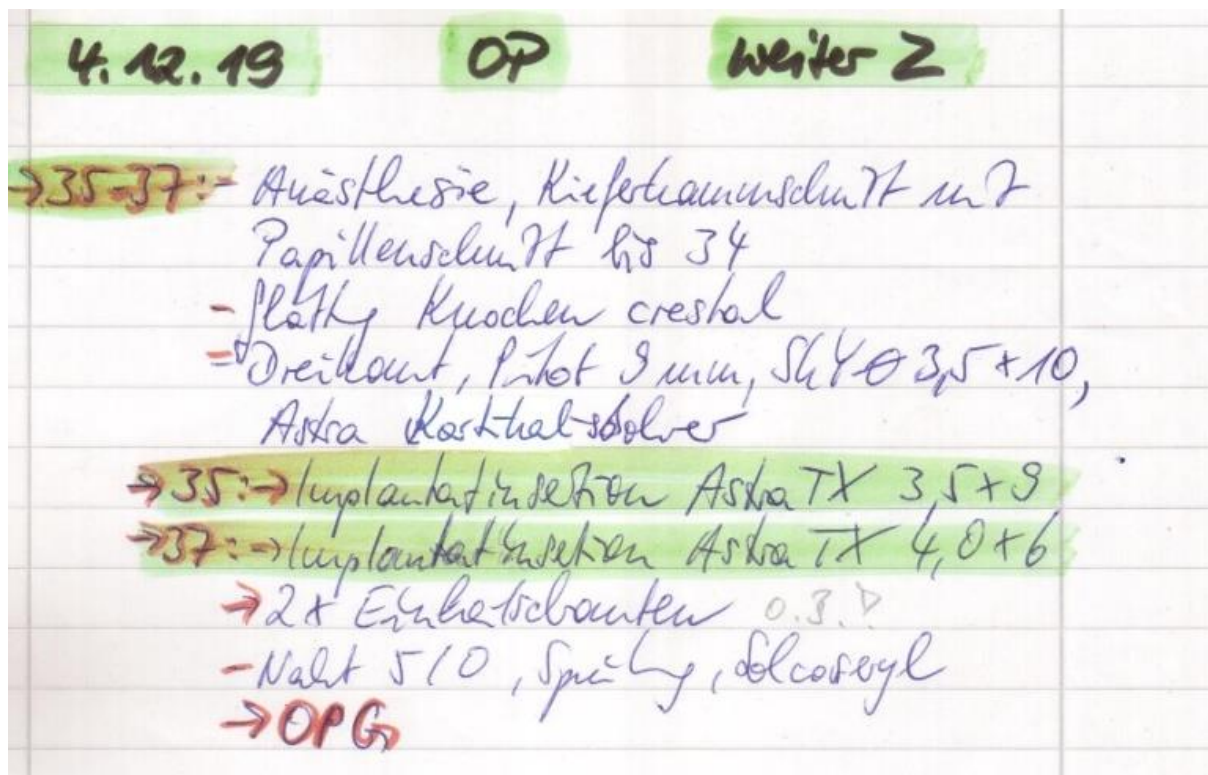 4.12.19 OP weiter Z
→35-37:- Anästhesie, Kieferkammschnitt mit
Papillenschnitt bis 34
- Glättg Knochen crestal
- Dreikant, Pilot 9 mm, SKY Ø 3,5 x 10,
Astra
→35:→Implantatinsertion Astra TX 3,5x9
→37:→Implantatinsertion Astra TX 4,0x6
→2x
- Naht 5/0, Spülg, Solcoseryl
→OPG